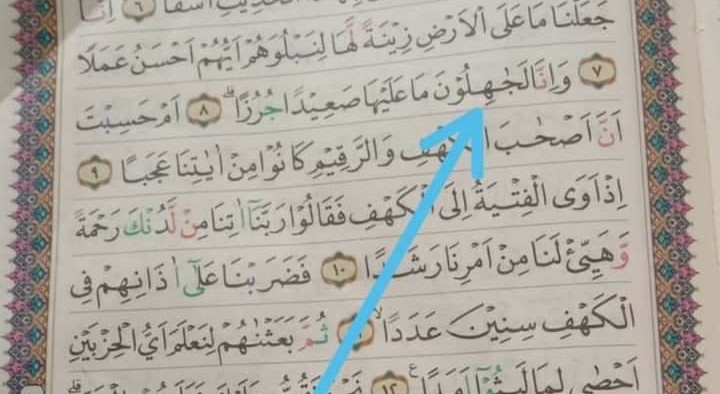 الْحَدِيْثِ اَسَفًا ٦ اِنَّا
جَعَلْنَا مَا عَلَى الْاَرْضِ زِيْنَةً لَّهَا لِنَبْلُوَهُمْ اَيُّهُمْ اَحْسَنُ عَمَلًا
٧ وَاِنَّا لَجٰهِلُوْنَ مَا عَلَيْهَا صَعِيْدًا جُرُزًاۗ ٨ اَمْ حَسِبْتَ
اَنَّ اَصْحٰبَ الْكَهْفِ وَالرَّقِيْمِ كَانُوْا مِنْ اٰيٰتِنَا عَجَبًا ٩
اِذْ اَوَى الْفِتْيَةُ اِلَى الْكَهْفِ فَقَالُوْا رَبَّنَآ اٰتِنَا مِنْ لَّدُنْكَ رَحْمَةً
وَّهَيِّئْ لَنَا مِنْ اَمْرِنَا رَشَدًا ١٠ فَضَرَبْنَا عَلٰٓى اٰذَانِهِمْ فِى
الْكَهْفِ سِنِيْنَ عَدَدًاۙ ثُمَّ بَعَثْنٰهُمْ لِنَعْلَمَ اَيُّ الْحِزْبَيْنِ
اَحْصٰى لِمَا لَبِثُوْٓا اَمَدًاࣖ ١٢